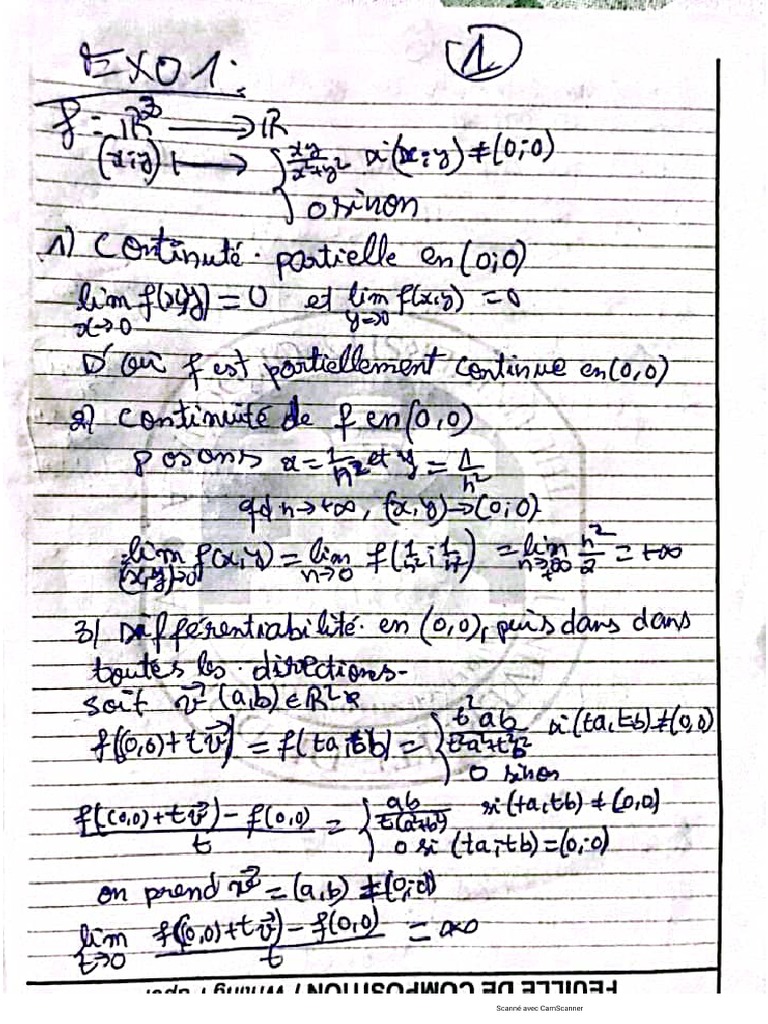 Exo 1:
1
f = ℝ² ⟶ ℝ
(x;y) ⟼ { xy/(x²+y²) si (x;y) ≠ (0;0)
0 sinon
1) Continuté partielle en (0;0)
lim x→0 f(x,y) = 0 et lim y→0 f(x,y) = 0
D'où f est partiellement continue en (0,0)
2) Continuité de f en (0,0)
posons x = 1/n² et y = 1/n²
qd n→+∞, (x,y)→(0;0)
lim (x,y)→0 f(x,y) = lim n→0 f(1/n²; 1/n²) = lim n→+∞ n²/2 = +∞
3) Différentiabilité en (0,0), puis dans dans
toutes les directions.
soit v⃗ (a,b) ∈ ℝ²*
f((0,0)+tv⃗) = f(ta,tb) = { t²ab/(t²a²+t²b²) si (ta,tb) ≠ (0,0)
0 sinon
(f((0,0)+tv⃗) − f(0,0))/t = { ab/(t(a²+b²)) si (ta,tb) ≠ (0,0)
0 si (ta;tb) = (0;0)
on prend v⃗ = (a,b) ≠ (0;0)
lim t→0 (f((0,0)+tv⃗) − f(0,0))/t = ∞
FEUILLE DE COMPOSITION / Writing Paper
Scanné avec CamScanner